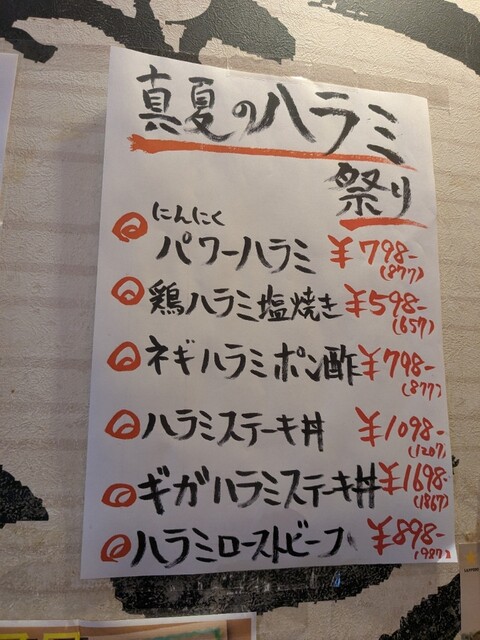 真夏のハラミ
祭り
にんにく
パワーハラミ ¥798-
(877)
鶏ハラミ塩焼き ¥598-
(657)
ネギハラミポン酢 ¥798-
(877)
ハラミステーキ丼 ¥1098-
(1207)
ギガハラミステーキ丼 ¥1698-
(1867)
ハラミローストビーフ ¥898-
(987)